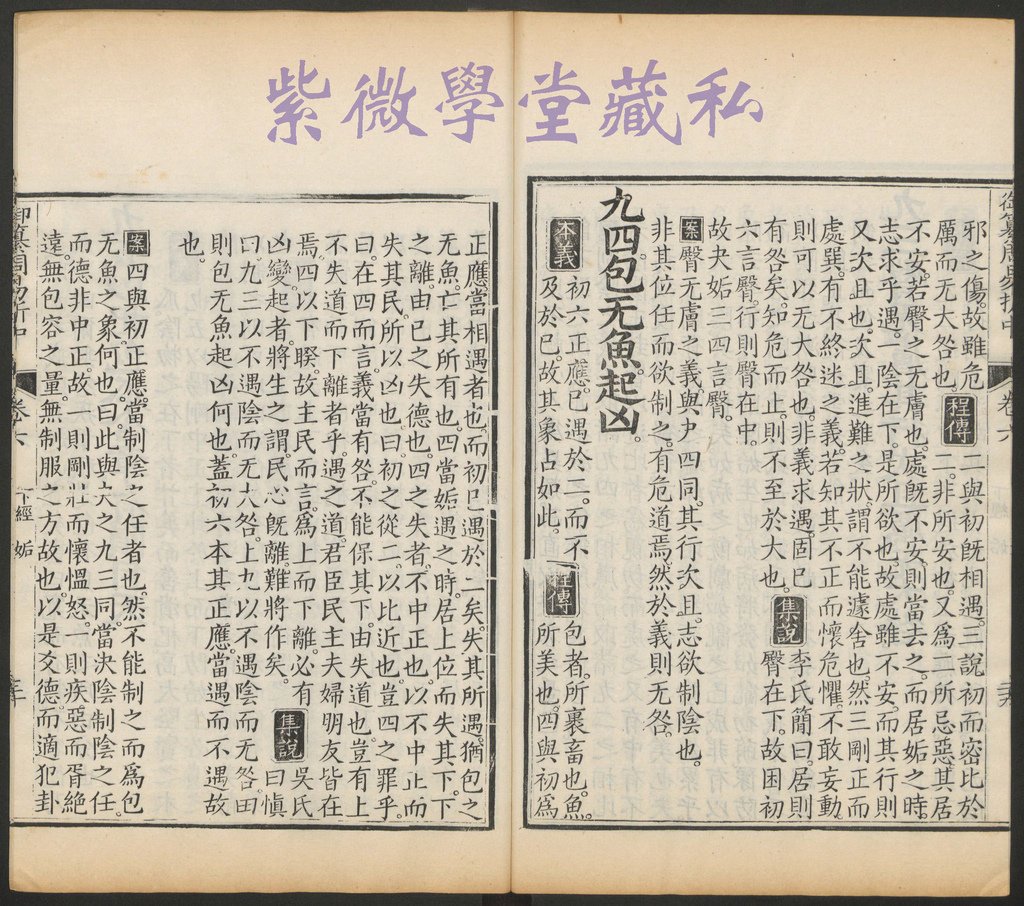 紫微學堂藏私
邪之傷故雖危
厲而无大咎也
程傳
二與初旣相遇三說初而密比於
二非所安也又爲二所忌惡其居
不安若臀之无膚也處旣不安則當去之而居姤之時
志求乎遇一陰在下是所欲也故處雖不安而其行則
又次且也次且進難之狀謂不能遽舍也然三剛正而
處巽有不終迷之義若知其不正而懷危懼不敢妄動
則可以无大咎也非義求遇固已
有咎矣知危而止則不至於大也
集說
李氏簡曰居則
臀在下故困初
六言臀行則臀在中
故夬姤三四言臀
案
臀无膚之義與夬四同其行次且志欲制陰也
非其位任而欲制之有危道焉然於義則无咎
九四包无魚起凶
本義
初六正應已遇於二而不
及於己故其象占如此
程傳
包者所裹畜也魚
所美也四與初爲
正應當相遇者也而初已遇於二矣失其所遇猶包之
无魚亡其所有也四當姤遇之時居上位而失其下下
之離由己之失德也四之失者不中正也以不中正而
失其民所以凶也曰初之從二以比近也豈四之罪乎
曰在四而言義當有咎不能保其下由失道也豈有上
不失道而下離者乎遇之道君臣民主夫婦朋友皆在
焉四以下睽故主民而言爲上而下離必有
凶變起者將生之謂民心旣離難將作矣
集說
吳氏
曰愼
曰九三以不遇陰而无大咎上九以不遇陰而无咎四
則包无魚起凶何也蓋初六本其正應當遇而不遇故
也
案
四與初正應當制陰之任者也然不能制之而爲包
无魚之象何也曰此與夬之九三同當決陰制陰之任
而德非中正故一則剛壯而懷慍怒一則疾惡而胥絕
遠無包容之量無制服之方故也以是爻德而適犯卦
下經
姤